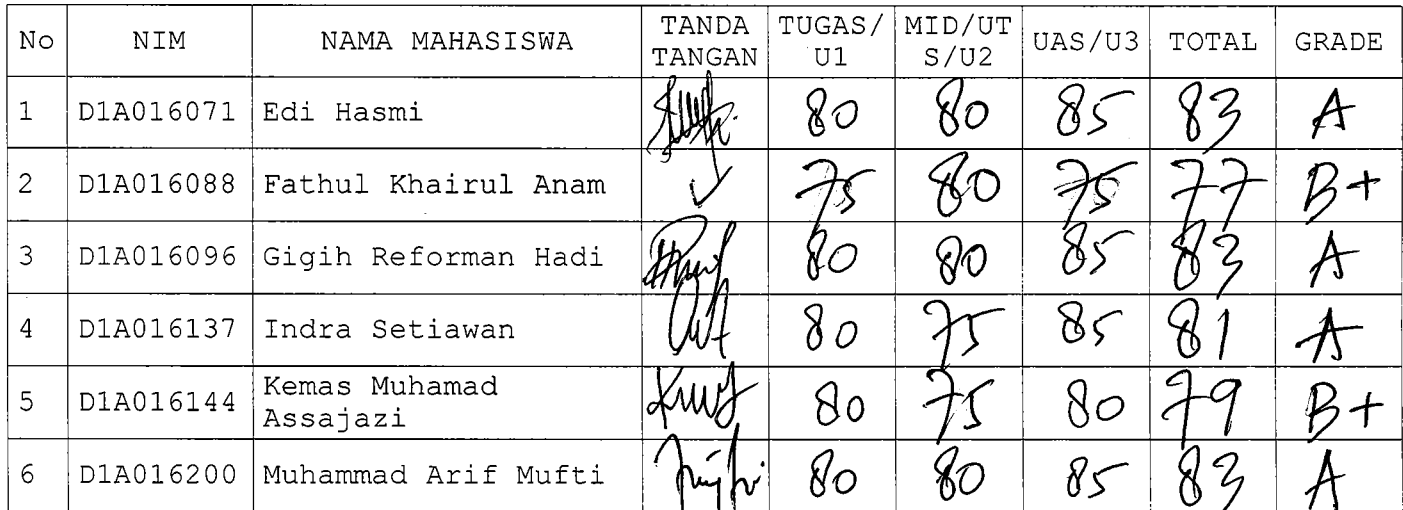 No NIM NAMA MAHASISWA TANDA TANGAN TUGAS/U1 MID/UTS/U2 UAS/U3 TOTAL GRADE
1 D1A016071 Edi Hasmi 80 80 85 83 A
2 D1A016088 Fathul Khairul Anam 75 80 75 77 B+
3 D1A016096 Gigih Reforman Hadi 80 80 85 83 A
4 D1A016137 Indra Setiawan 80 75 85 81 A
5 D1A016144 Kemas Muhamad Assajazi 80 75 80 79 B+
6 D1A016200 Muhammad Arif Mufti 80 80 85 83 A